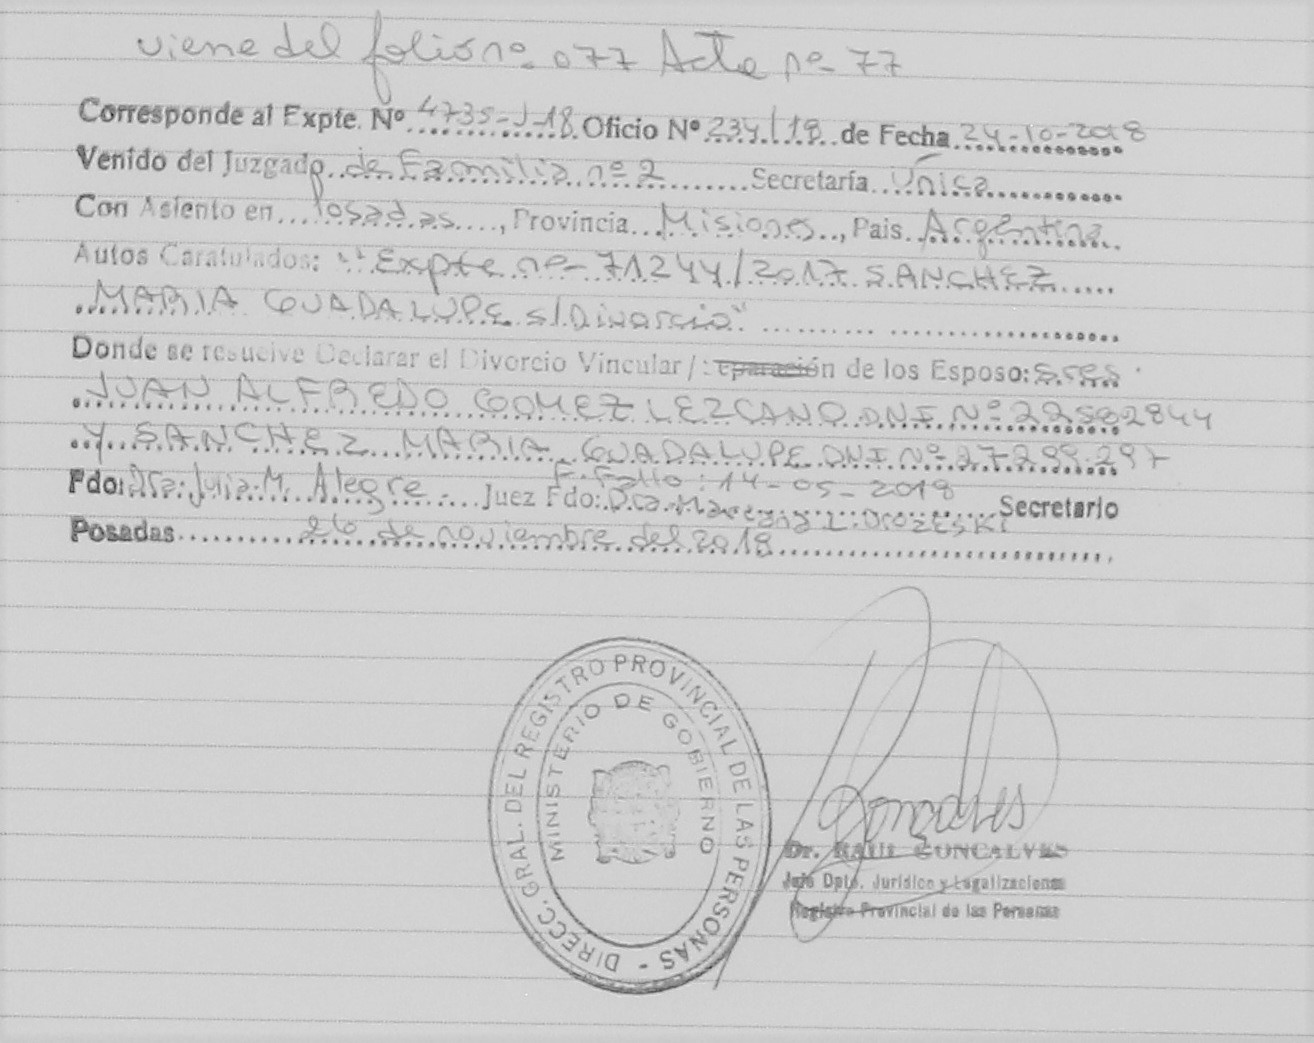 viene del folio nº 077 Acta nº 77
Corresponde al Expte. Nº 4735-J-18 Oficio Nº 234/18 de Fecha 24-10-2018
Venido del Juzgado de Familia nº 2 Secretaría Única
Con Asiento en Posadas, Provincia Misiones, Pais Argentina
Autos Caratulados: "Expte nº 71244/2017 SANCHEZ
MARIA GUADALUPE s/Divorcio"
Donde se resuelve Declarar el Divorcio Vincular / Separación de los Esposo: Sres
JUAN ALFREDO GOMEZ LEZCANO DNI Nº 22582844
Y SANCHEZ MARIA GUADALUPE DNI Nº 27.299.297
F. Fallo: 14-05-2018
Fdo: Dra. Julia M. Alegre Juez Fdo: Dra. L. Secretario
Posadas 26 de noviembre del 2018
DIRECC. GRAL. DEL REGISTRO PROVINCIAL DE LAS PERSONAS -
MINISTERIO DE GOBIERNO
Goncalves
Dr. RAUL GONCALVES
Jefe Dpto. Jurídico y Legalizaciones
Registro Provincial de las Personas